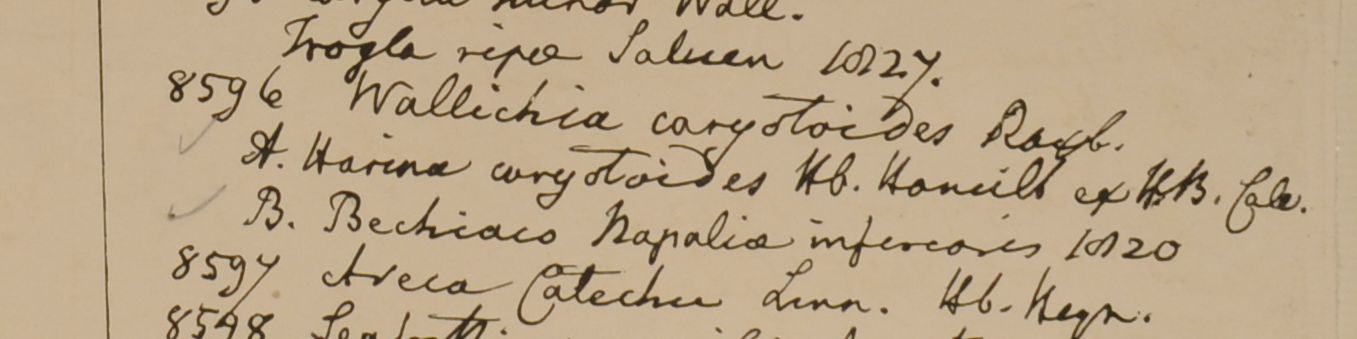 minor Wall.
Trogla ripæ Saluen 1827.
8596 Wallichia caryotoides Roxb.
A. Harina caryotoides Hb. Hamilt ex H.B. Calc.
B. Bechiaco Napaliæ inferioris 1820
8597 Areca Catechu Linn. Hb. Heyn.
8598